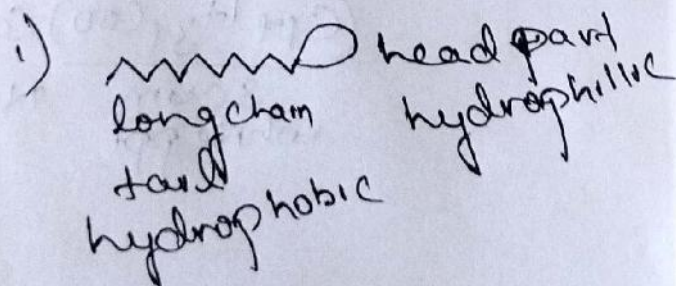 1) head part
long chain hydrophillic
tail
hydrophobic